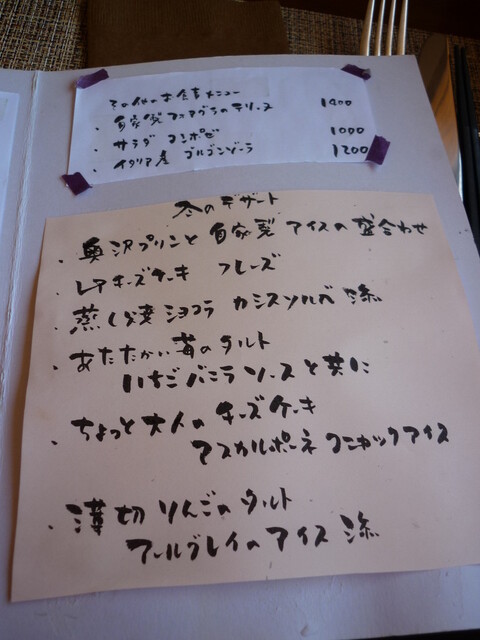 その他のお食事メニュー
・自家製フォアグラのテリーヌ 1400
・サラダ コンポゼ 1000
・イタリア産 ゴルゴンゾーラ 1200
冬のデザート
・奥沢プリンと自家製アイスの盛合わせ
・レアチーズケーキ フレーズ
・蒸し焼ショコラ カシスソルベ添
・あたたかい苺のタルト
いちごバニラソースと共に
・ちょっと大人のチーズケーキ
マスカルポーネ コニャックアイス
・薄切りんごのタルト
アールグレイのアイス 添